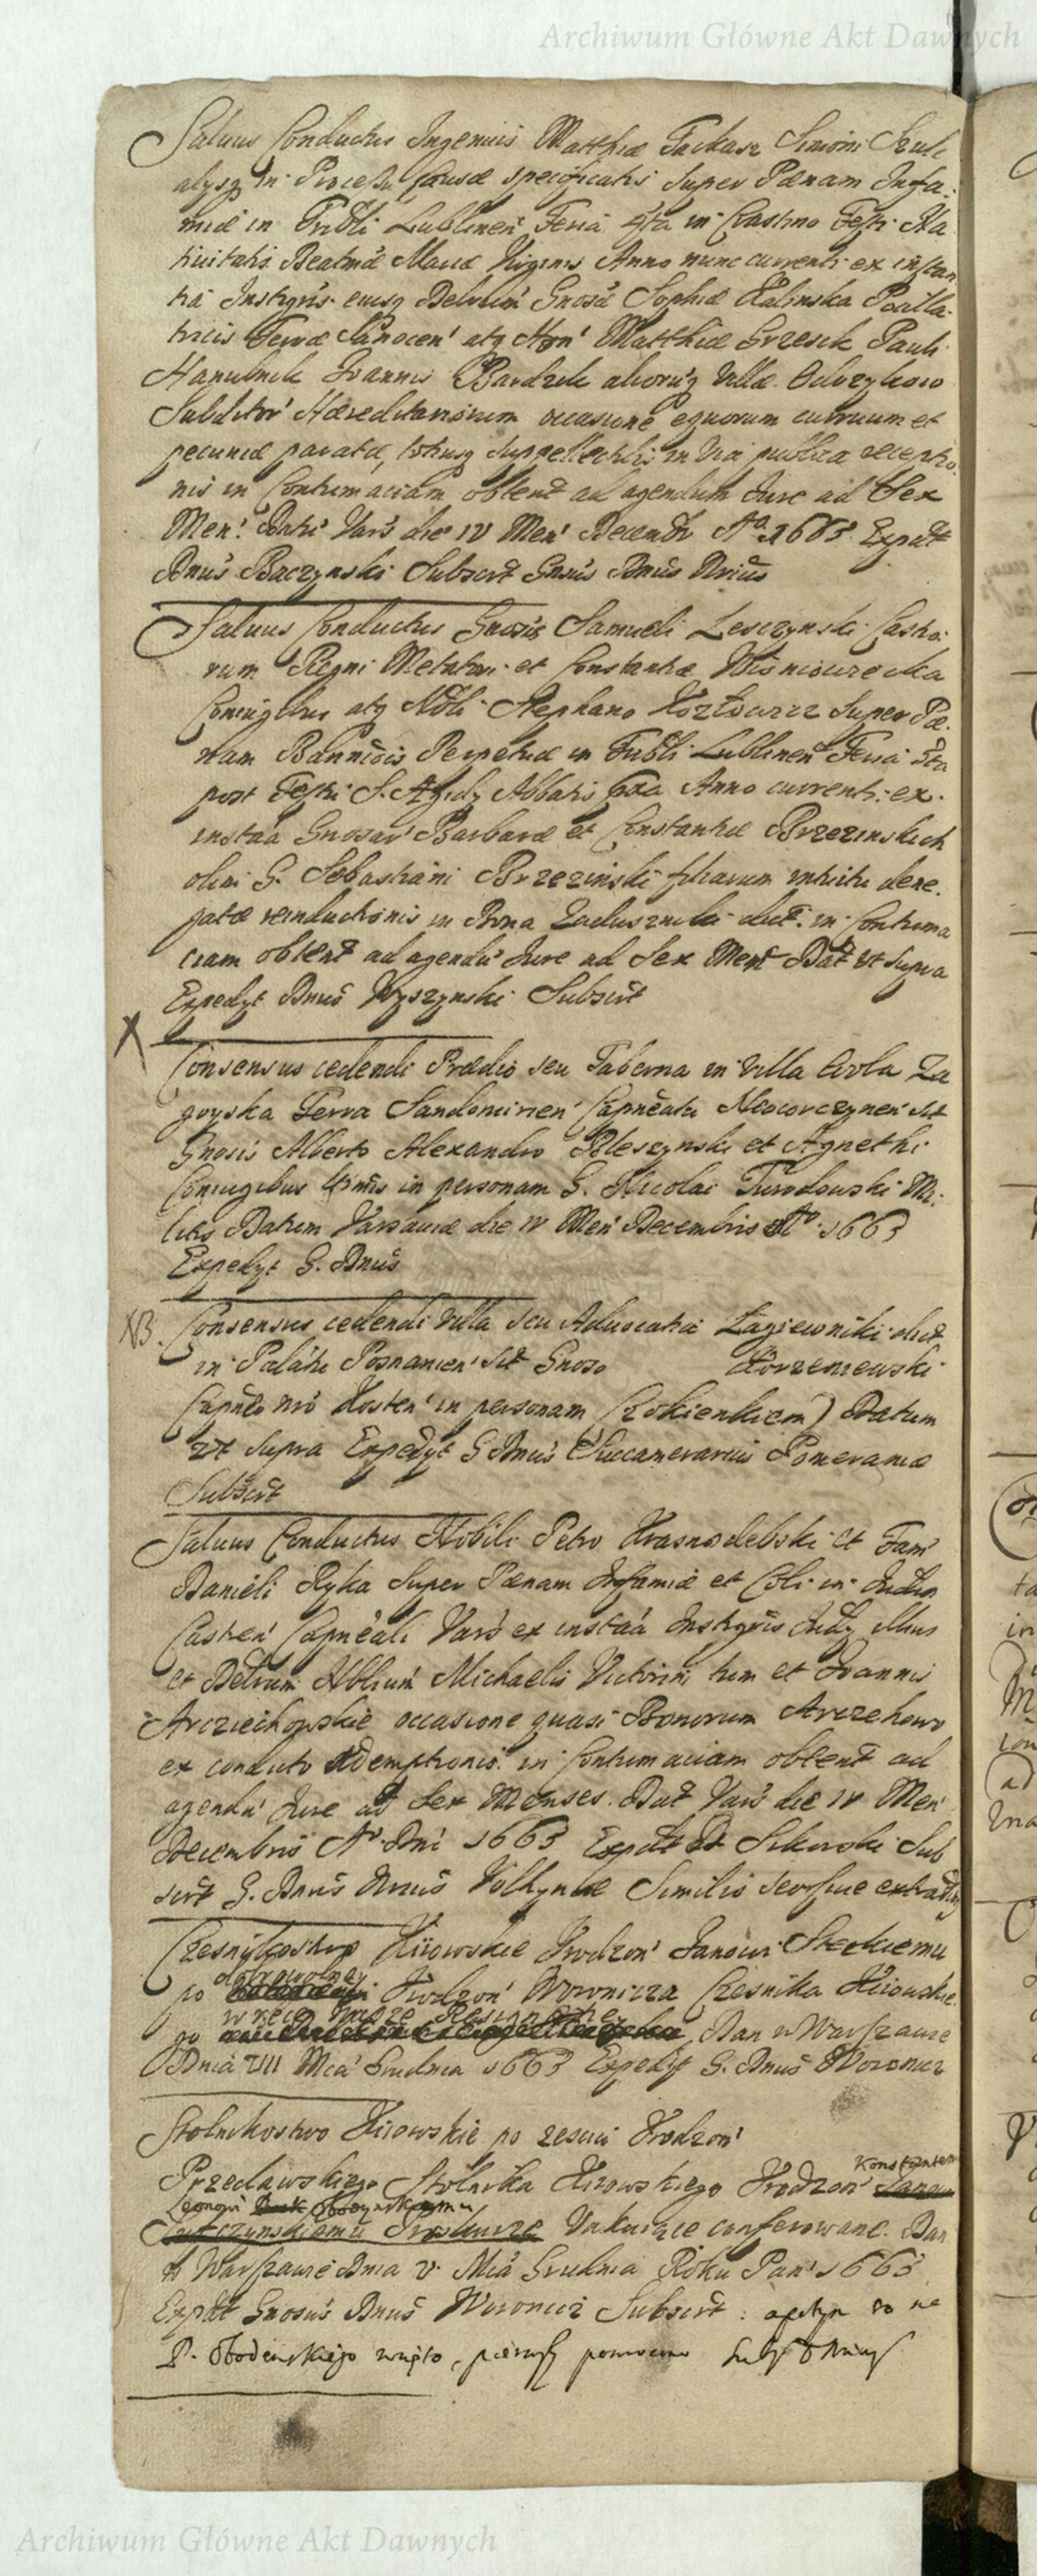 Archiwum Główne Akt Dawnych
Salvus Conductus Ingenuis Matthiæ Simoni
alysq in Processu causæ specificatis super Pænam Infa-
miæ in Tribli Lublinen Feria 4ta in Crastino Festi Na
tivitatis Beatmæ Mariæ Virginis Anno nunc currenti ex instan
tia Instigris eiusq Delnim Gnosæ Sophiæ Kalinska Pocilla-
tricis Terræ Sanocen' atq Hon' Matthiæ Grzesik Pauli
Hanulnik Ioannis Bardzik aliorūq Villæ Odrzykow
Subditor' Hæreditariorum occasione equorum curruum et
pecuniæ paratæ, totiusq suppellectilis in via publica receptio
nis in Contumaciam obtent ad agendum Iure ad Sex
Men: Datū Vars die IV Men' Decembr Aº 1663 Expdt
Dnus Baczynski Subscrt Gnsus Dnus
Salvus Conductus Gnosis Samueli Lesczynski Castro-
rum Regni Metatori et Constantiæ Wisniowiecka
Coniugibus atq Nobli Stephano Kozlowicz super Pæ-
nam Bannitiois Perpetuæ in Tribli Lublinen Feria 6ta
post Festū S. Aegidy Abbatis Anno currenti ex
instaa Gnosar' Barbaræ et Constantiæ Brzezinskich
olim G. Sebastiani Brzezinski filiarum intuitu dene-
gatæ reinductionis in Bona dict. in Contuma
ciam obtent ad agendū Iure ad Sex Men Dat ut supra
Expedyt Dnus Wyszynski Subscrt
X
Consensus cedendi Prædio seu Taberna in Villa Wola Za
goyska Terra Sandomirien' Capneatu Neocorczynen' sit
Gnosis Alberto Alexandro Pleszynski et Agnethi
Coniugibus in personam G. Nicolai Turobowski Mi-
litis Datum Varsaviæ die IV Men Decembris Aº 1663
Expedyt G. Dnus
NB. Consensus cedendi Villa seu Advocatia Łagiewniki dict
in Palatū Posnanien' sit Gnoso Korzeniewski
Capneo nro Kosten' in personam (Czokienkiem) Datum
ut supra Expedyt G Dnus Succamerarius Pomeraniæ
Subscrt
Salvus Conductus Nobili Petro Krasnodebski et Fam'
Danieli Ryka super Pænam Infamiæ et Coli in Iudio
Castren' Capneali Vars ex instaā Instigris Iudy illius
et Delnim Nblium Michaelis Victorini tum et Ioannis
Arcziechowskie occasione quasi Bonorum Arczehowo
ex conducto Ademptionis in Contumaciam obtent ad
agendū Iure ad Sex Menses. Dat Vars die IV Men
Decembris Aº Dni 1663 Expdt D Sikorski Sub
scrt G. Dnus Volhyniæ Similis seorsive
Czesnikostwo Kiiowskie Urodzon' Janowi Steckiemu
dobrowolney
po Urodzon' Woronicza Czesnika Kiiowskie
w ręce Nasze Resignatiey
go Dan w Warszawie
Dnia VIII Mca Grudnia 1663 Expedyt G. Dnus Woronicz
Stolnikostwo Kiiowskie po zesciu Urodzon'
Konstanten
Przecławskiego Stolnika Kiiowskiego Urodzon' Janowi
Leonowi
Vakuiące conferowane. Dan
w Warszawie Dnia V Mca Grudnia Roku Pan' 1663
Expdt Gnosus Dnus Woronicz Subscrt:
P.
Archiwum Główne Akt Dawnych